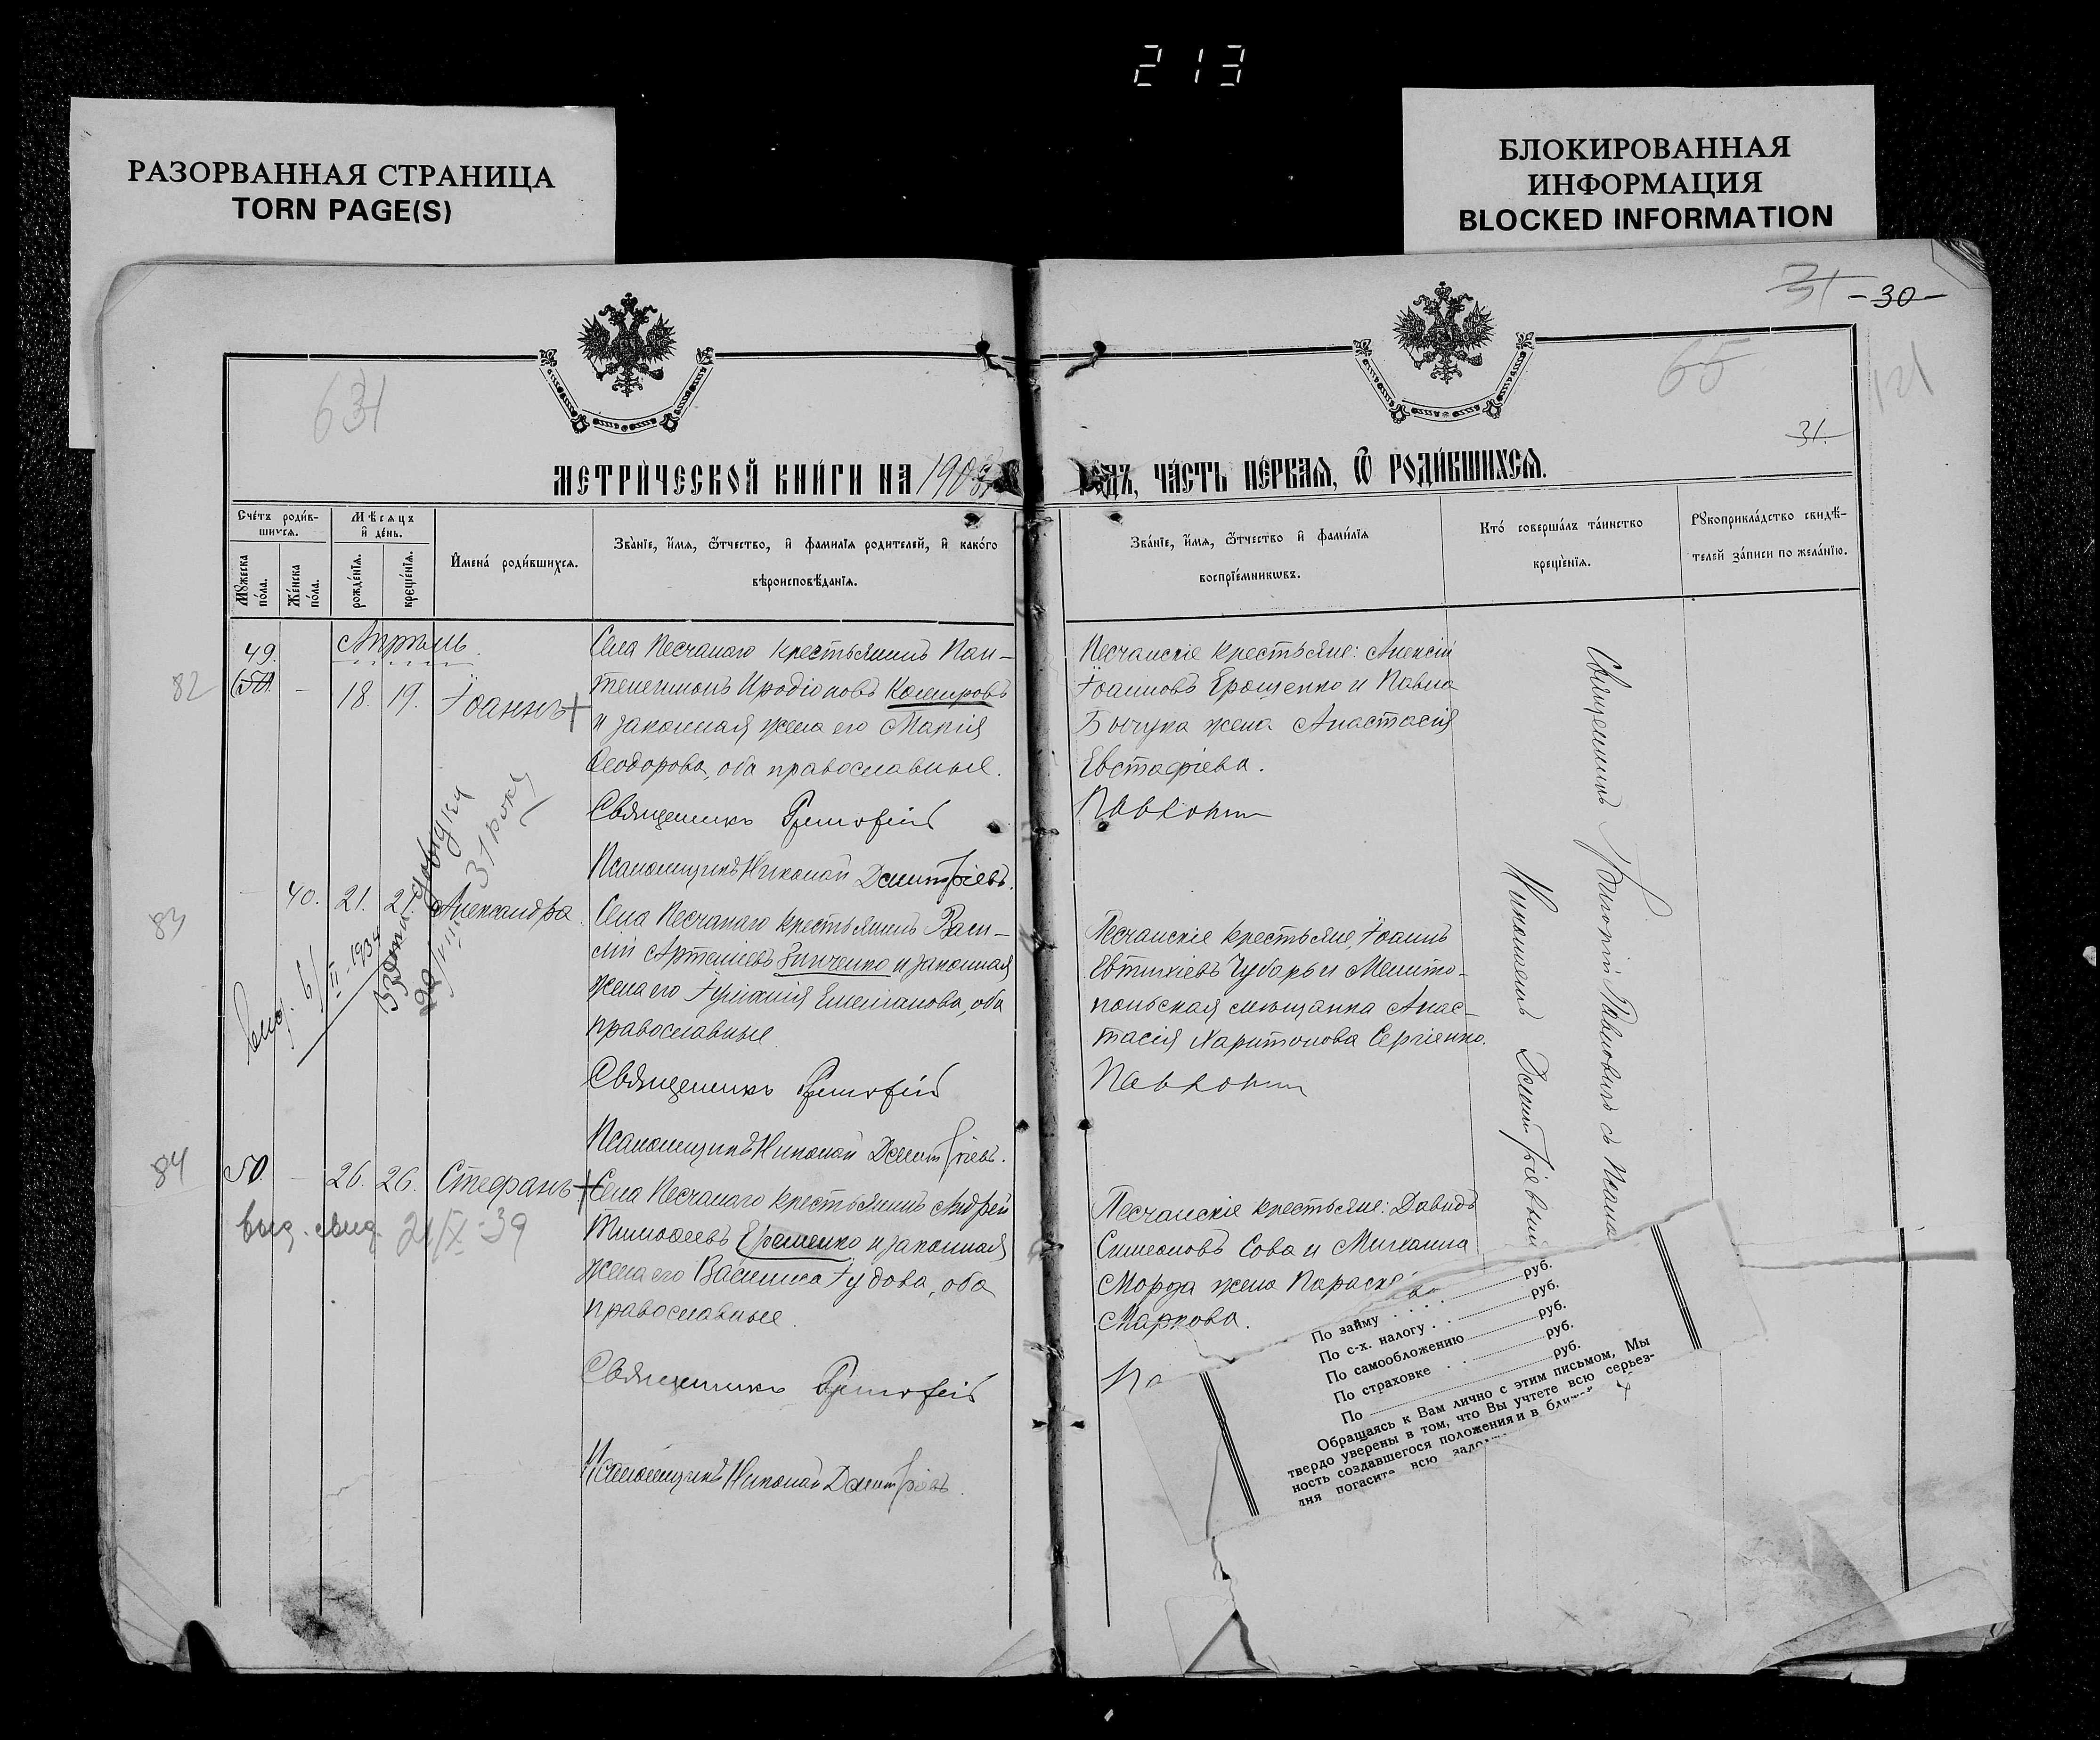 213
РАЗОРВАННАЯ СТРАНИЦА
TORN PAGE(S)
БЛОКИРОВАННАЯ
ИНФОРМАЦИЯ
BLOCKED INFORMATION
31 -30-
65
121
31.
МЕТРИ́ЧЕСКОЙ КНИ́ГИ НА 190
ЧА́СТЬ ПЕ́РВАЯ, Ѿ РОДИ́ВШИХСЯ.
Сче́тъ роди́в-
шихся.
Мꙋжеска по́ла.
Же́нска по́ла.
Мѣ́сяцъ
и҆ де́нь.
рожде́нїя.
креще́нїя.
И҆мена́ роди́вшихся.
Зва́нїе, и҆́мя, ѻ҆́тчество, и҆ фами́лїя роди́телей, и҆ како́го
вѣроисповѣ́данїя.
Зва́нїе, и҆́мя, ѻ҆́тчество и҆ фами́лїя
воспрїе́мникѡвъ.
Кто́ соверша́лъ та́инство
креще́нїя.
Рꙋкоприкла́дство свидѣ́-
телей за́писи по жела́нїю.
Апрѣль.
82
49.
50.
-
18.
19.
Іоаннъ +
Села Песчанаго крестьянинъ Пан-
телеимонъ Иродіоновъ
и законная жена его Марія
Ѳеодорова, оба православные.
Священникъ
Псаломщикъ Николай Димитріевъ.
Песчанскіе крестьяне: Алексій
Іоанновъ Ерошенко и Павла
жена Анастасія
Евстафіева.
83
40.
21.
21.
Александра.
довідка
31 року
Села Песчанаго крестьянинъ Васи-
лій Артеміевъ Зинченко и законная
жена его Емеліанова, оба
православные.
Священникъ
Псаломщикъ Николай Димитріевъ.
Песчанскіе крестьяне, Іоаннъ
Евтихіевъ Чубарь и Мелито-
польская мѣщанка Анас-
тасія Харитонова Сергіенко.
84
50
-
26.
26.
Стефанъ +
выд. свид. 21/IX-39
Села Песчанаго крестьянинъ Андрей
Тимоѳеевъ Ерошенко и законная
жена его Василиса Іудова, оба
православные.
Священникъ
Псаломщикъ Николай Димитріевъ.
Песчанскіе крестьяне: Давидъ
Симеоновъ Сова и Михаила
жена Параске
Маркова.
Священникъ Григорій Павловичъ съ Псалом
Николаемъ Димитріевым
По займу руб.
По с-х. налогу руб.
По самообложению руб.
По страховке руб.
По руб.
Обращаясь к Вам лично с этим письмом, Мы
твердо уверены в том, что Вы учтете всю серьез-
ность создавшегося положения и в ближ
дня погасите всю задол